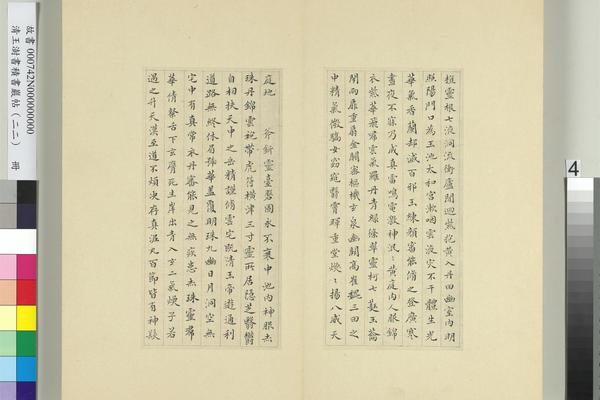 故書 000742N000000000
清王澍書積書巖帖（二二） 冊
4
植靈根七液洞流衝廬間迴紫抱黃入丹田幽室內明
照陽門口為玉池太和宮漱咽靈液灾不干體生光
華氣香蘭却滅百邪玉鍊顏審能脩之登廣寒
晝夜不寐乃成真雷鳴電激神泯〻黃庭內人服錦
衣紫華飛裙雲氣羅丹青綠條翠靈柯七蕤玉籥
閉兩扉重扇金關密樞機玄泉幽闕高崔巍三田之
中精氣微嬌女窈窕翳霄暉重堂煥〻揚八威天
庭地 斧斫靈臺磐固永不衰中池內神服赤
珠丹錦雲袍帶虎符橫津三寸靈所居隱芝翳鬱
自相扶天中之岳精謹脩雲宅既清玉帝遊通利
道路無終休眉號華蓋覆明珠九幽日月洞空無
宅中有真常衣丹審能見之無疾患赤珠靈裙
華倩粲舌下玄膺死生岸出青入玄二氣煥子若
遇之升天漢至道不煩決存真泥丸百節皆有神髮